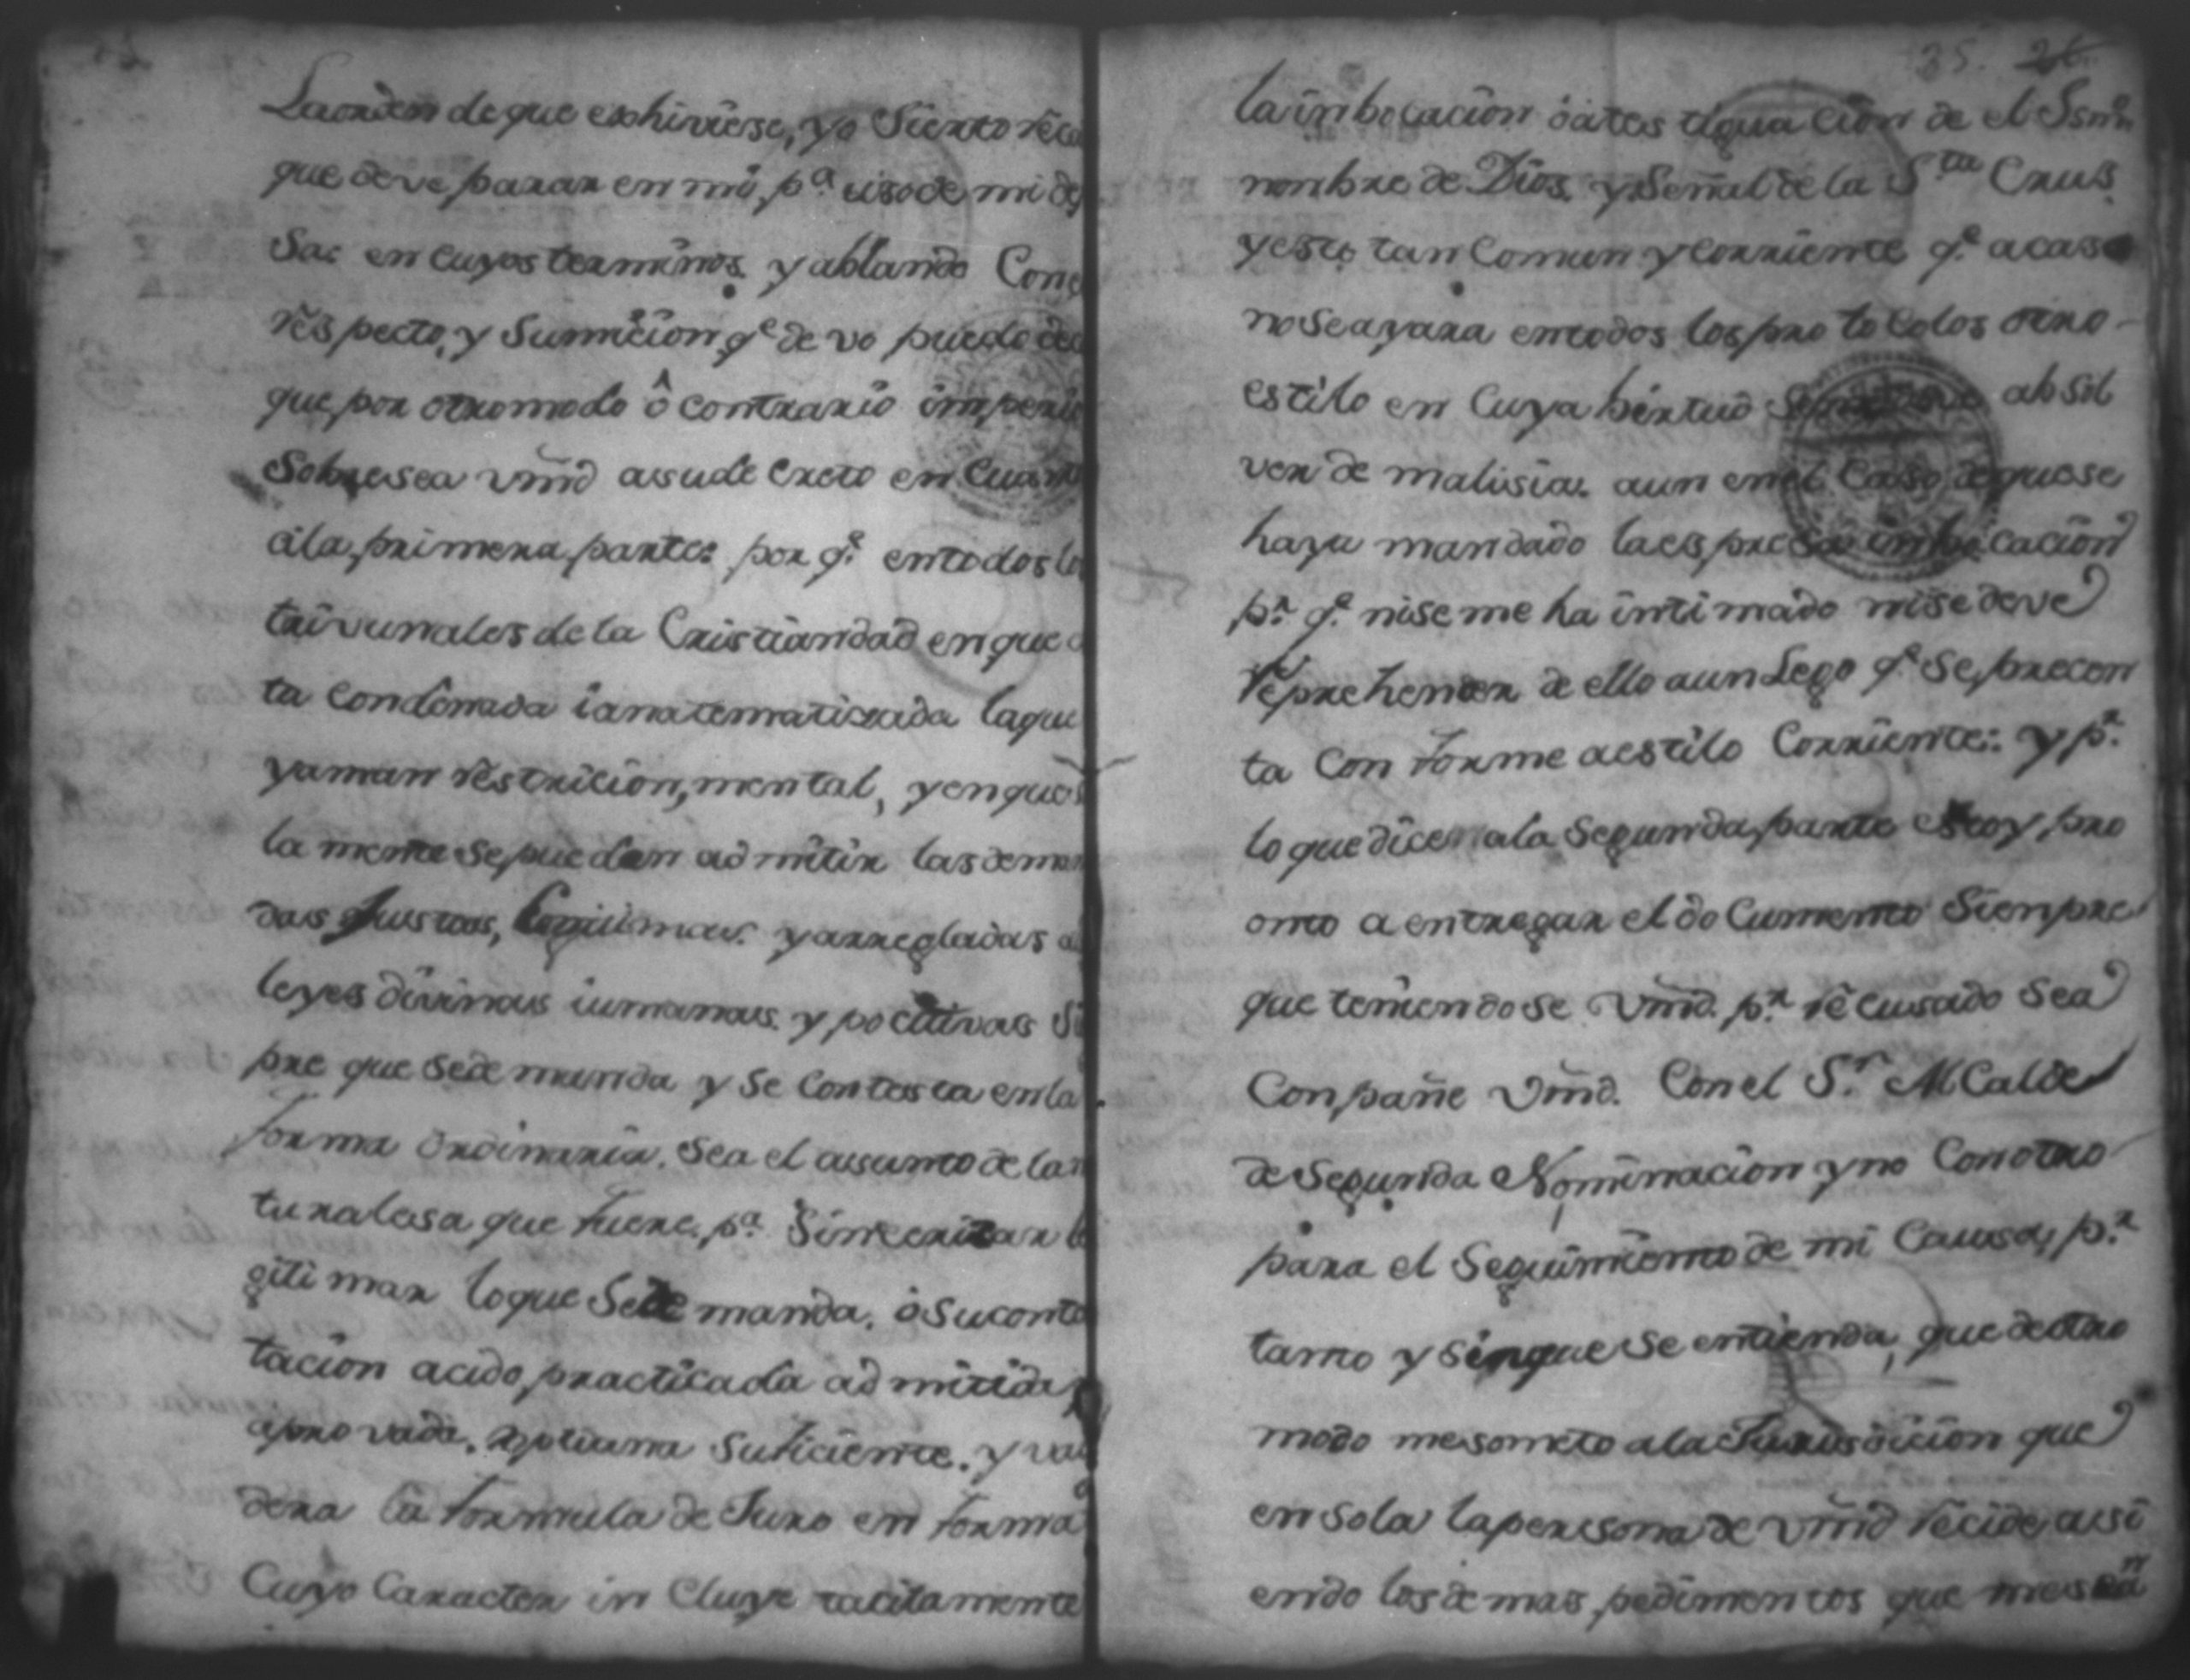 La orden de que exhiviese, yo Siento reca
que deve parar en mi, p.ª uso de mi de
Sas en cuyos terminos y ablando Con
respecto, y Sumicion q.e devo puedo dec
que por otro modo ô contrario imperi
Sobresea vmd asude creto en Cuant
ala primera parte: por q.e entodos lo
trivunales de la Cristiandad en que
ta condenada ianatematizada laque
yaman restricion, mental, y en que
la mente se puedan admitir las deman
das Justas, Legiimas y arregladas a
leyes divinas iumanas y pocitivas Si
pre que sede manda y se contesta enla
forma ordinaria. Sea el asunto de la n
turalesa que fuere. p.ª Sinserisar le
gitimar loque Sede manda, ô su conte
tacion acido practicada admitida
aprovada, suficiente. y va
dera la formula de Juro en forma
Cuyo Caracter in Cluye tacitamente
25. 26
la inbocacion ó atestiguacion de el Ssmo
nombre de Dios y Señal de la S.ta Crus
y esto tan Comun y corriente q.e acaso
no seayara entodos los protocolos otro
estilo en Cuya birtud absol
ver de malisia aun en el Caso de quese
haya mandado la espresa inbocacion
p.r q.e nise me ha intimado nise deve
reprehender de ello aun Lego q.e se precon
ta Con forme aestilo Corriente: y p.r
lo que dice ala Segunda parte estoy pro
onto a entregar el do Cumento Sienpre
que teniendose vmd. p.r recusado sea
Conpañe vmd. Con el S.r AlCalde
de Segunda Nominacion y no Con otro
para el Seguimiento de mi Causa, p.r
tanto y sinque se entienda, que de otro
modo mesometo ala Jurisdicion que
en sola lapersona de vmd recide, asi
endo los demas pedimentos que